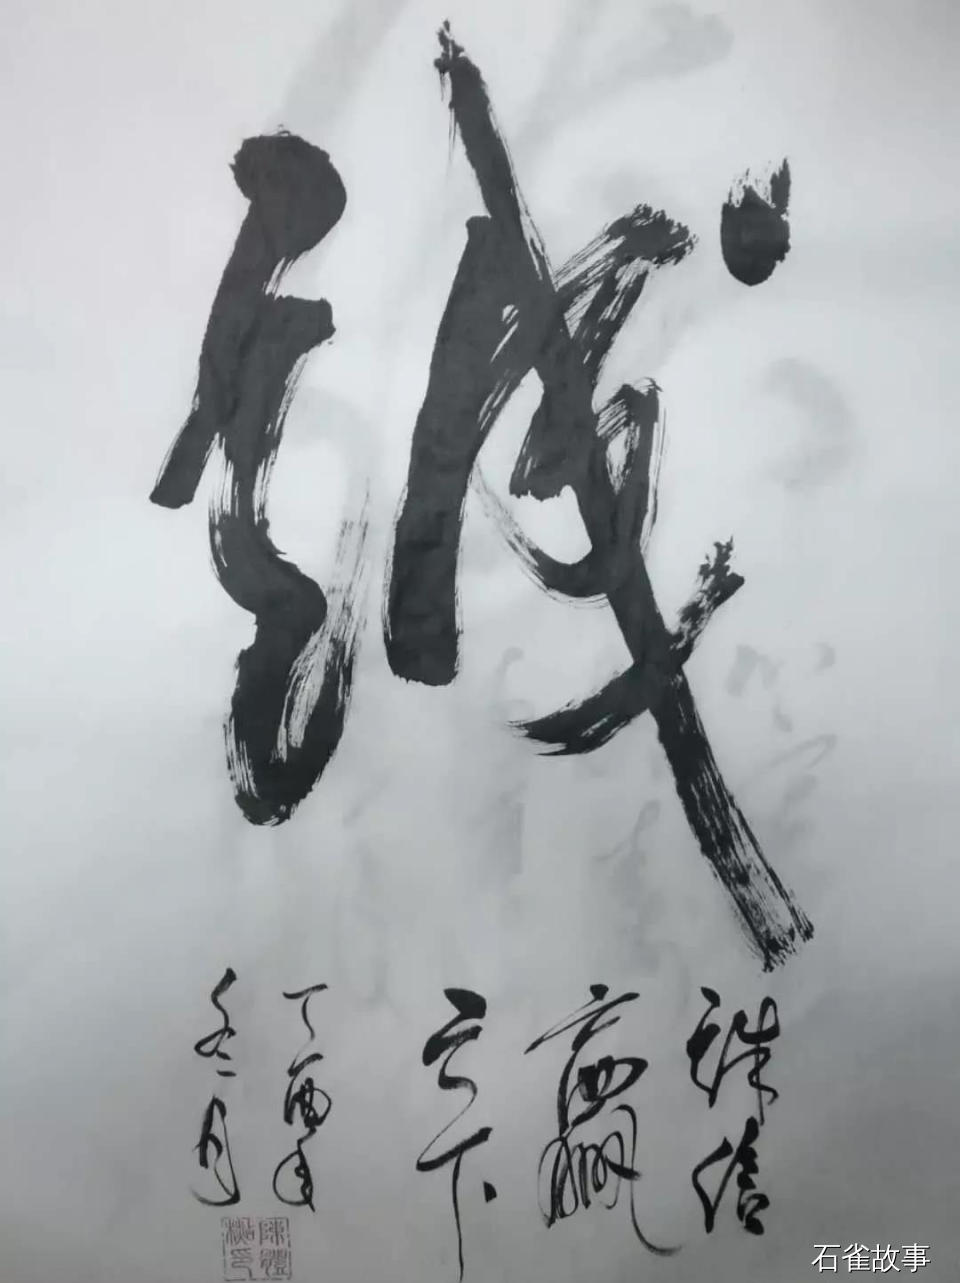 诚
诚信
赢
天下
丁酉年
冬月
石雀故事